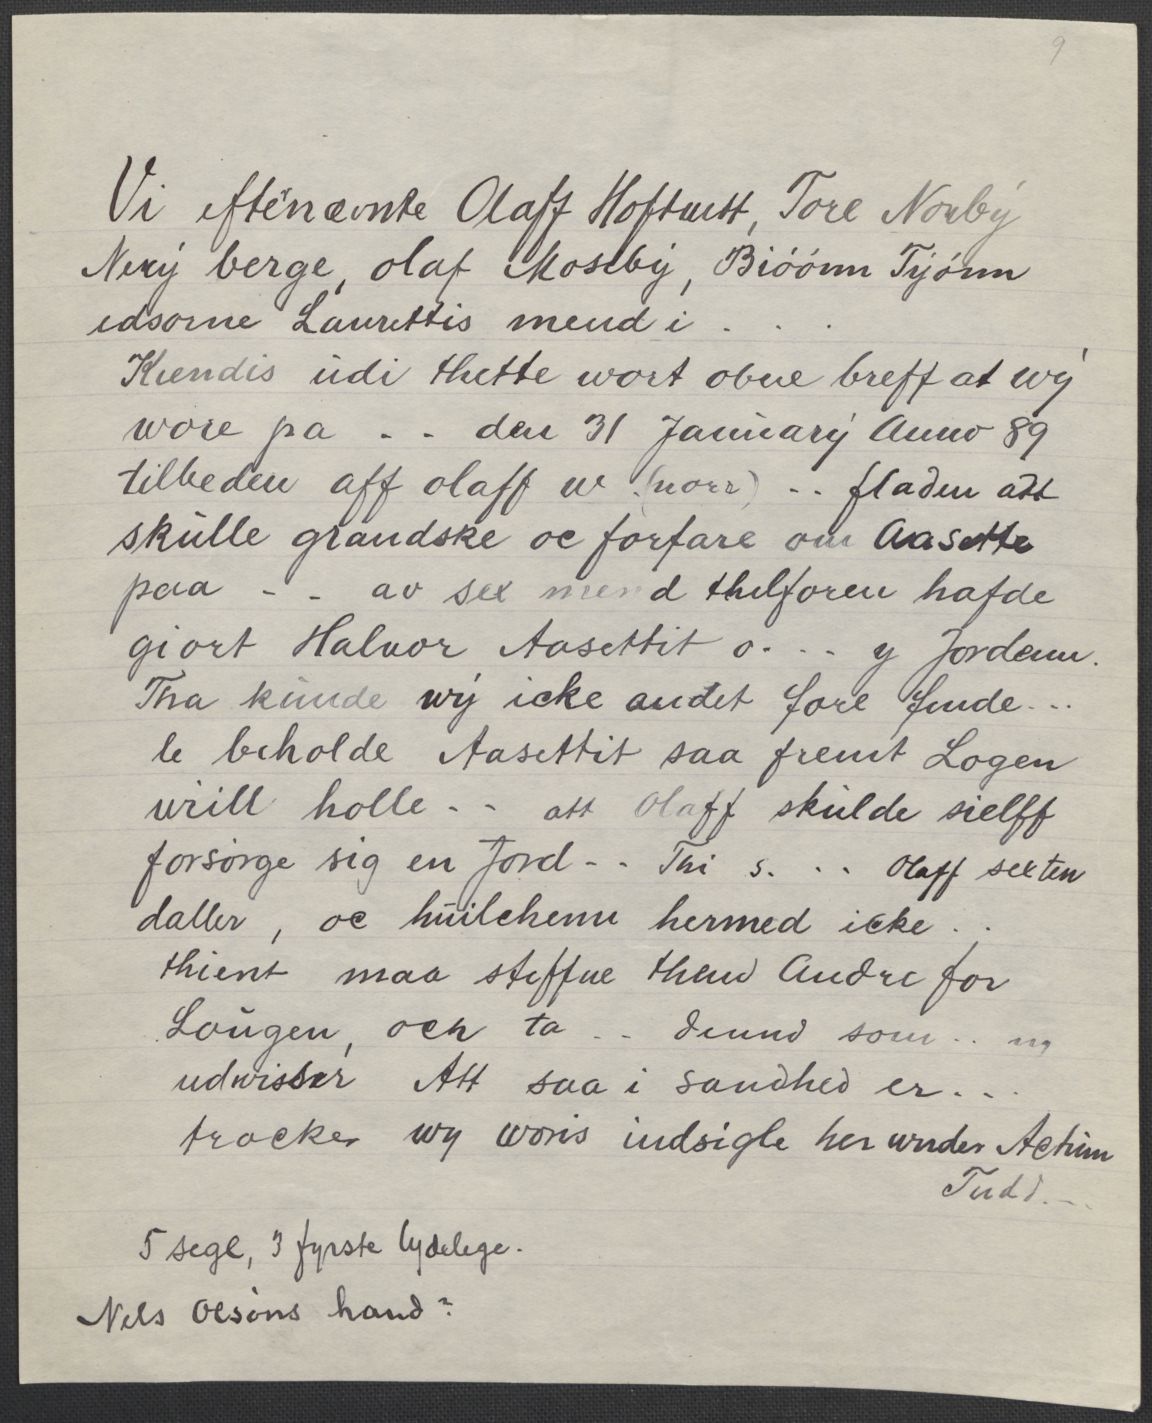 9
Vi eftennemnte Olaff Hoftuett, Tore Norbÿ
Nerÿ berge, olaf Mosebÿ, Bióónn Tÿónn
edsorne Laurettis mend i . . .
Kiendis üdi thette wort obne breff at wÿ
wore pa - - den 31 Januarÿ Anno 89
tilbeden aff olaff w (norr) - - fladen att
skülle grandske oc forfare om Aasette
paa - - av sex mend thilforen hafde
giort Haluor Aasettit o. - - y Jordenn.
Tha künde wÿ icke andet fore finde ...
le beholde Aasettit saa fremt Logen
will holle - - att Olaff skülde sielff
forsörge sig en Jord - - Thi s. . . Olaff sexten
daller, oc hüilchenn hermed icke . .
thient maa steffne thend Andre for
Loügen, och ta - - dennd som .. ng
udwisser Att saa i sandhed er . . .
trocker wy woris indsigle her wnder Actum
Tudd. - -
5 segl, 3 fyrste lydelege.
Nels Olsöns hand?